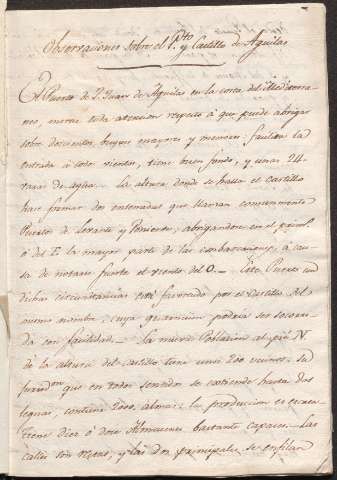 Observaciones sobre el P.to y Castillo de Aguilas
El Puerto de S. Juan de Aguilas en la costa del Mediterra-
neo, merece toda atencion respecto à que puede abrigar
sobre doscientos, buques mayores y menores: facilita la
entrada à todos vientos, tiene buen fondo, y unas 24
varas de agua. La altura donde se halla el Castillo
hace formar dos ensenadas que llaman comunmente
Puertos de Levante y Poniente; abrigandose en el
ó del E la mayor parte de las embarcaciones, à cau-
sa de notarse fuerte el viento del O. Este Puerto en
dichas circunstancias está favorecido por el Castillo del
mismo nombre, cuya guarnicion podria ser socorri-
da con facilidad. La nueva Poblacion al pie N.
de la altura del Castillo tiene unos 200 vecinos, su
que en todos sentidos se extiende hasta dos
leguas, contiene 2000, almas: la produccion es escasa
tiene diez ó doce Almacenes bastante capaces. Las
calles son rectas, y las dos principales se enfilan